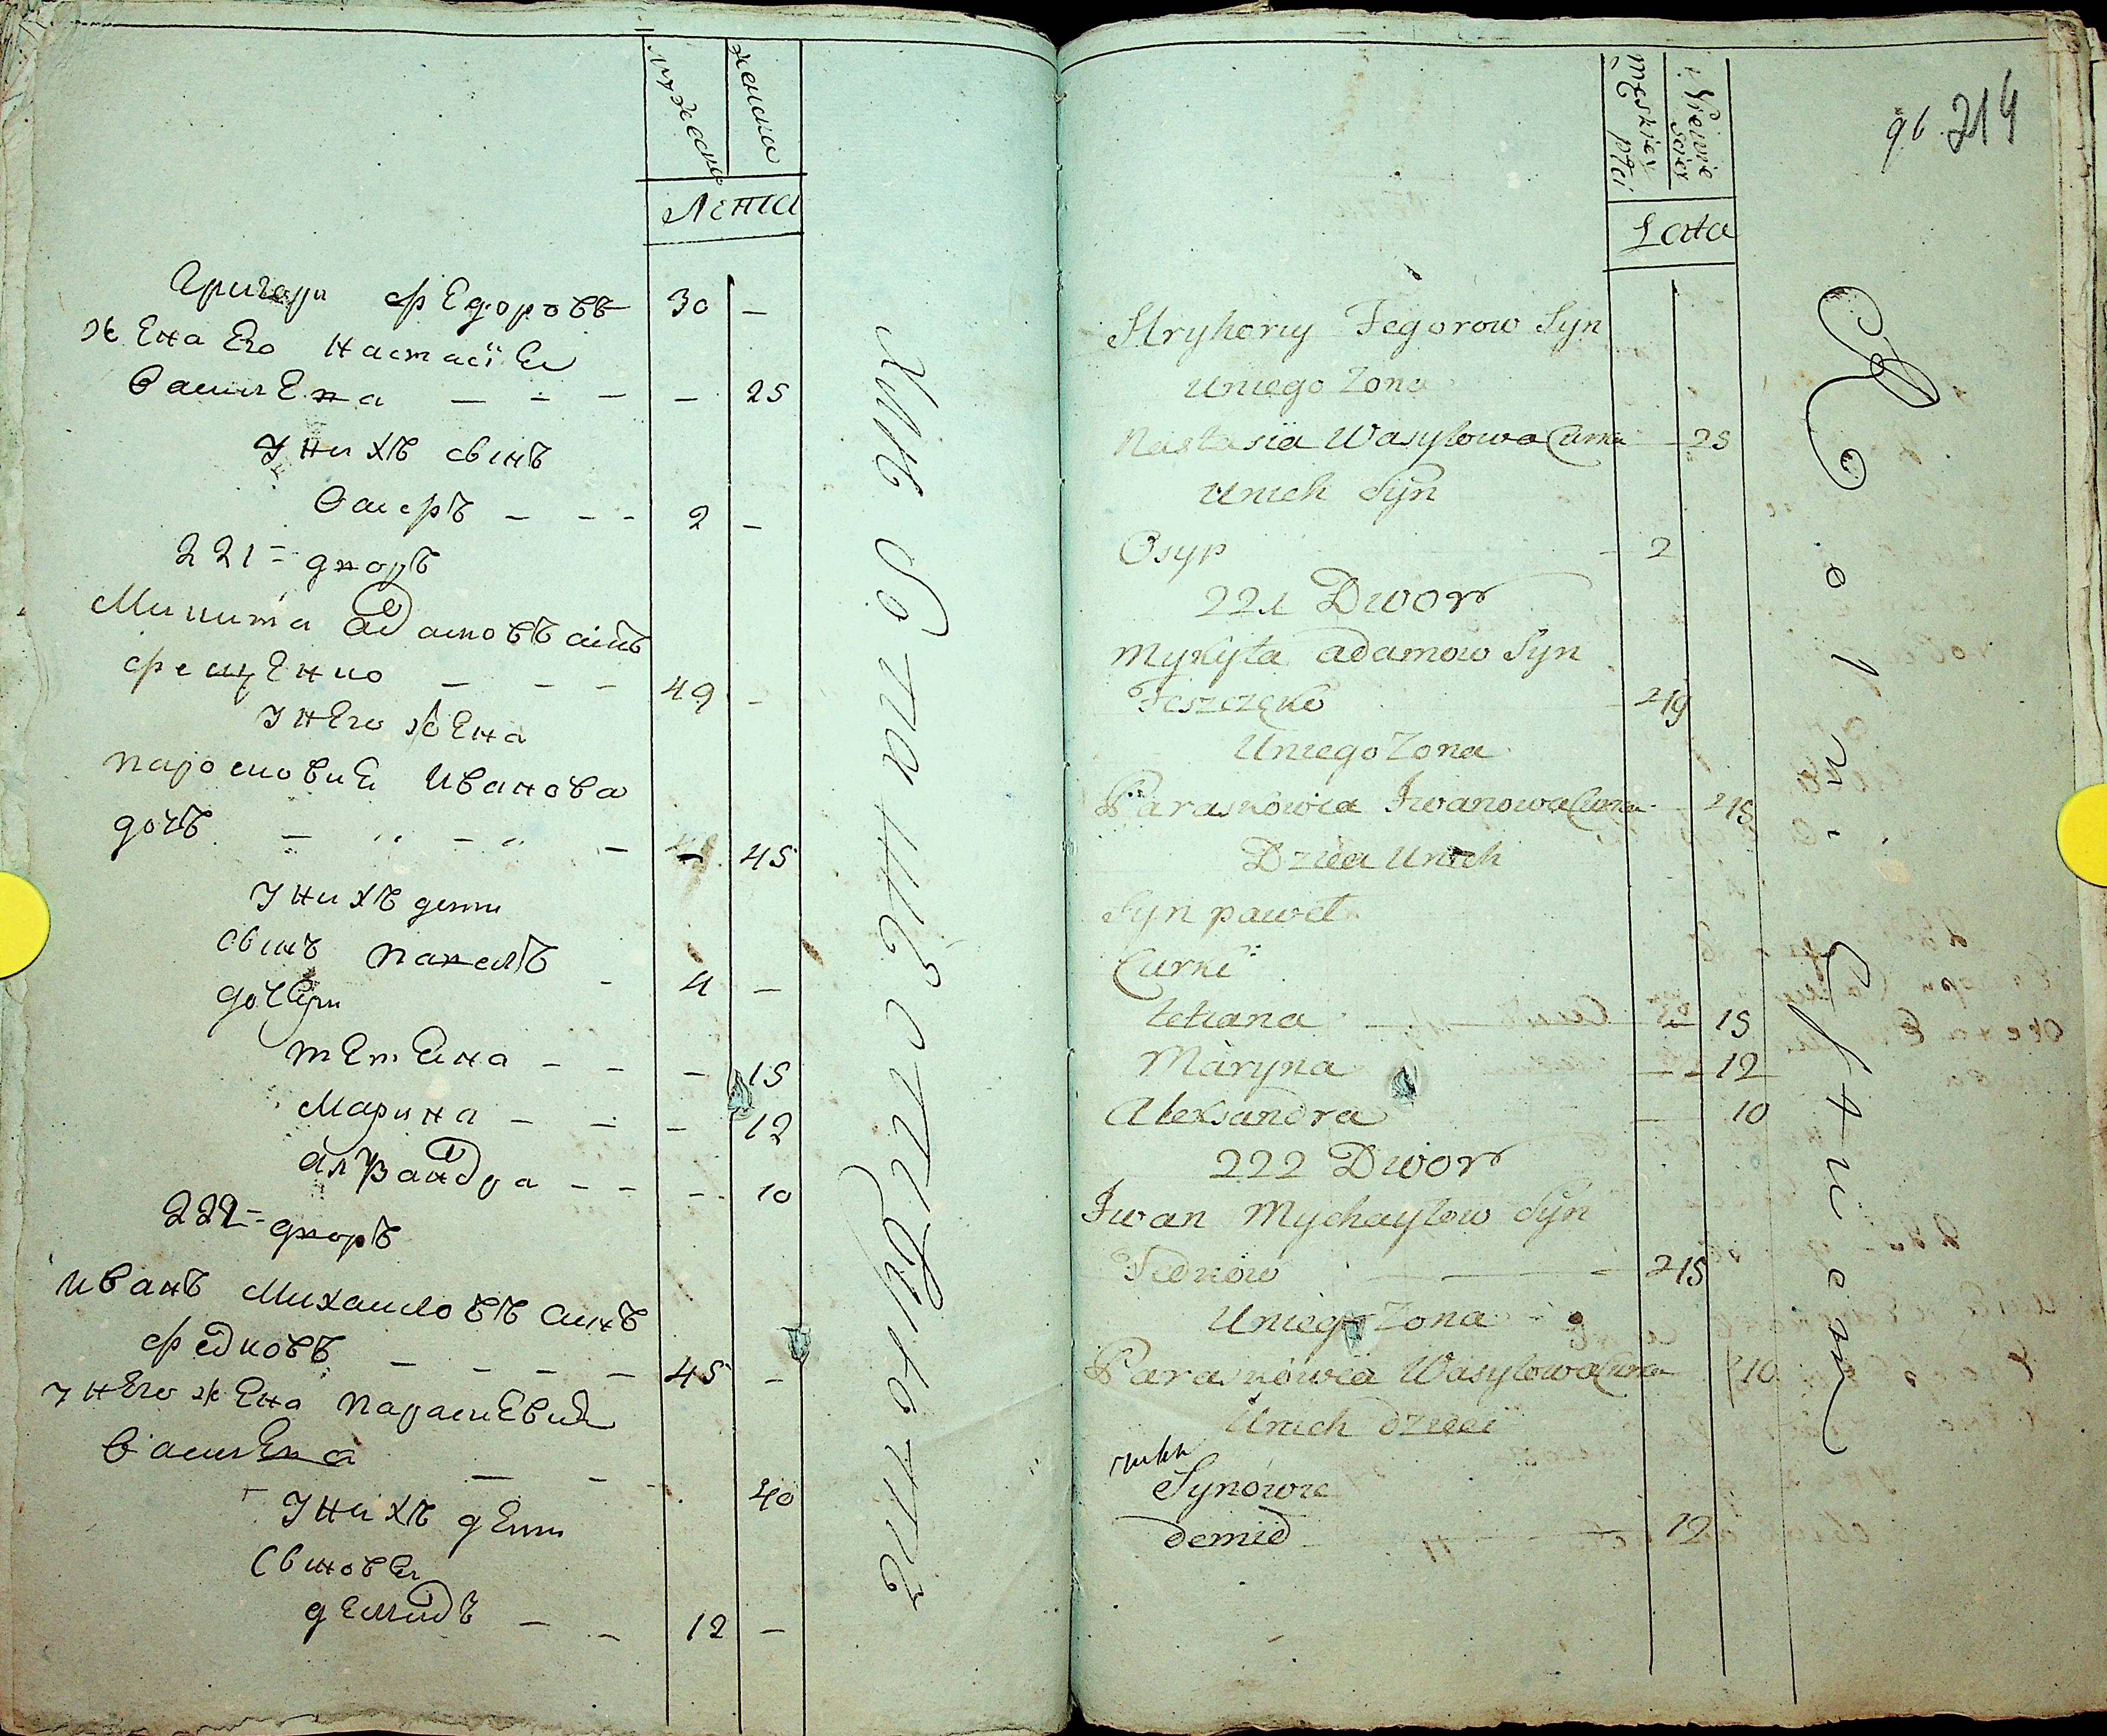 мужеска
женска
Лета
Григори Федоровъ 30 —
жена Его настасіЕи
ВасилЕва — — — — 25
У нихъ сынъ
Восифъ — — — 2 —
221 = дворъ
Микита адамовъ синъ
фещЕнко — — — 49 —
У нЕго жЕна
парасковиЕ Иванова
дочъ — — — — 45
У нихъ дети
сынъ павелъ — 4 —
дочЕри
тЕтЕина — — — 15
Марина — — — 12
алѯандра — — — 10
222 = дворъ
Иванъ Михаиловъ синъ
федковъ — — — — 45 —
У нЕго жЕна парасиЕвия
василЕва — — 40
У нихъ дЕти
Сыновеи
дЕмидъ — — 12 —
męskiey płci
Niewie
sciey
Lata
96 214
Hryhoriy Fegorow Syn
Uniego Zona
Nastasia Wasylowa Curka 25
Unich Syn
Osyp — 2
221 Dwor
Mykyta adamow Syn
Feszczęko 49
Uniego Zona
Paraskowia Iwanowa Curka 45
Dzieci Unich
Syn paweł
Curki
tetiana — 15
Maryna — 12
Alexandra — 10
222 Dwor
Iwan Mychayłow Syn
Fedkow — 45
Uniego Zona
Paraskowia Wasylowa Curka 40
Unich dzieci
Synowie
demid — 12